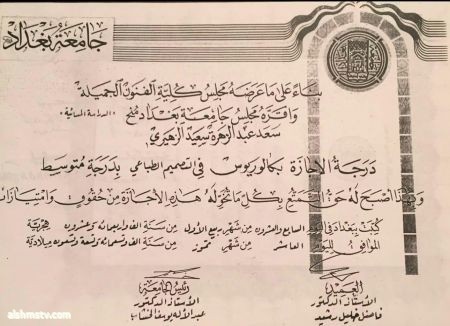 جامعة بغداد
بناءً على ما عرضه مجلس كلية الفنون الجميلة
واقره مجلس جامعة بغداد منح
"الدراسة المسائية"
سعد عبد الزهرة سعيد الزهيري
درجة الاجازة بكالوريوس في التصميم الطباعي بدرجة متوسط
وبهذا اصبح له حق التمتع بكل ما تخوله هذه الاجازة من حقوق وامتيازات
كتب ببغداد في اليوم السابع والعشرون من شهر ربيع الأول من سنة الف واربعمائة وعشرون هجرية
الموافق لليوم العاشر من شهر تموز من سنة الف وتسعمائة وتسعة وتسعون ميلادية
العميد
الأستاذ الدكتور
فاضل خليل رشيد
رئيس الجامعة
الأستاذ الدكتور
عبد الاله يوسف الخشاب
alshmatv.com